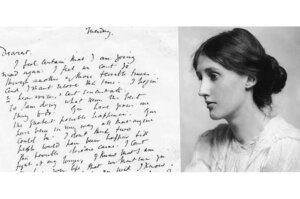 Tuesday.
Dearest,
I feel certain that I am going
mad again. I feel we can't go
through another of those terrible times.
And I shan't recover this time. I begin
to hear voices, and can't concentrate.
So I am doing what seems the best
thing to do. You have given me
the greatest possible happiness. You
have been in every way all that anyone
could be. I don't think two
people could have been happier till
this terrible disease came. I can't
fight it any longer, I know that I am
life, that without me you